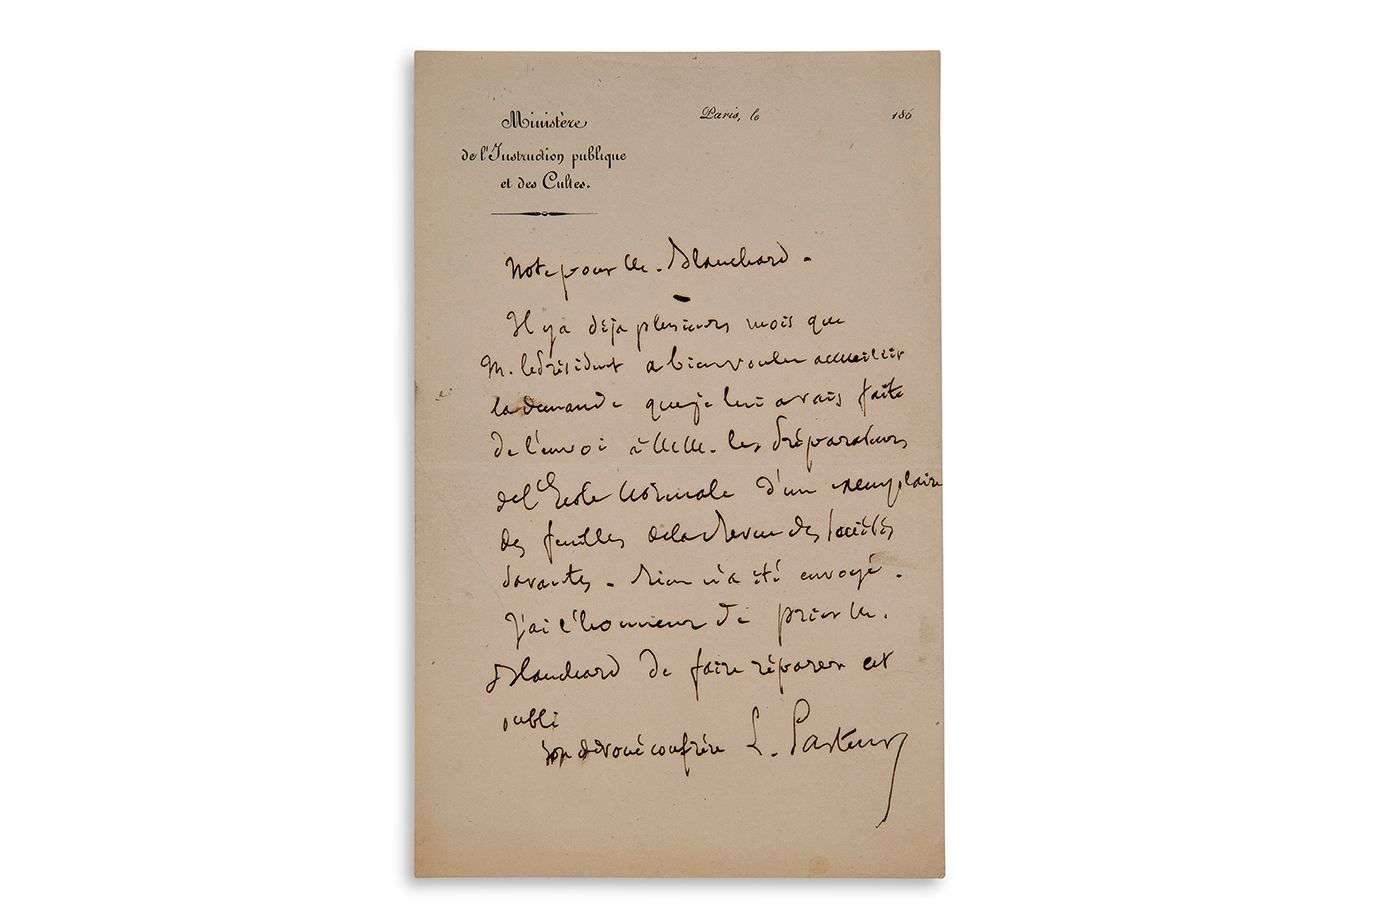 Ministère
de l'Instruction publique
et des Cultes.
Paris, le 186
Note pour M. Blanchard.
Il y a déjà plusieurs mois que
M. le Président a bien voulu accueillir
la demande que je lui avais faite
de l'envoi à MM. les Préparateurs
de l'Ecole Normale d'un exemplaire
des feuilles de la Revue des Sociétés
savantes. Rien n'a été envoyé.
J'ai l'honneur de prier M.
Blanchard de faire réparer cet
oubli
Son dévoué confrère L. Pasteur